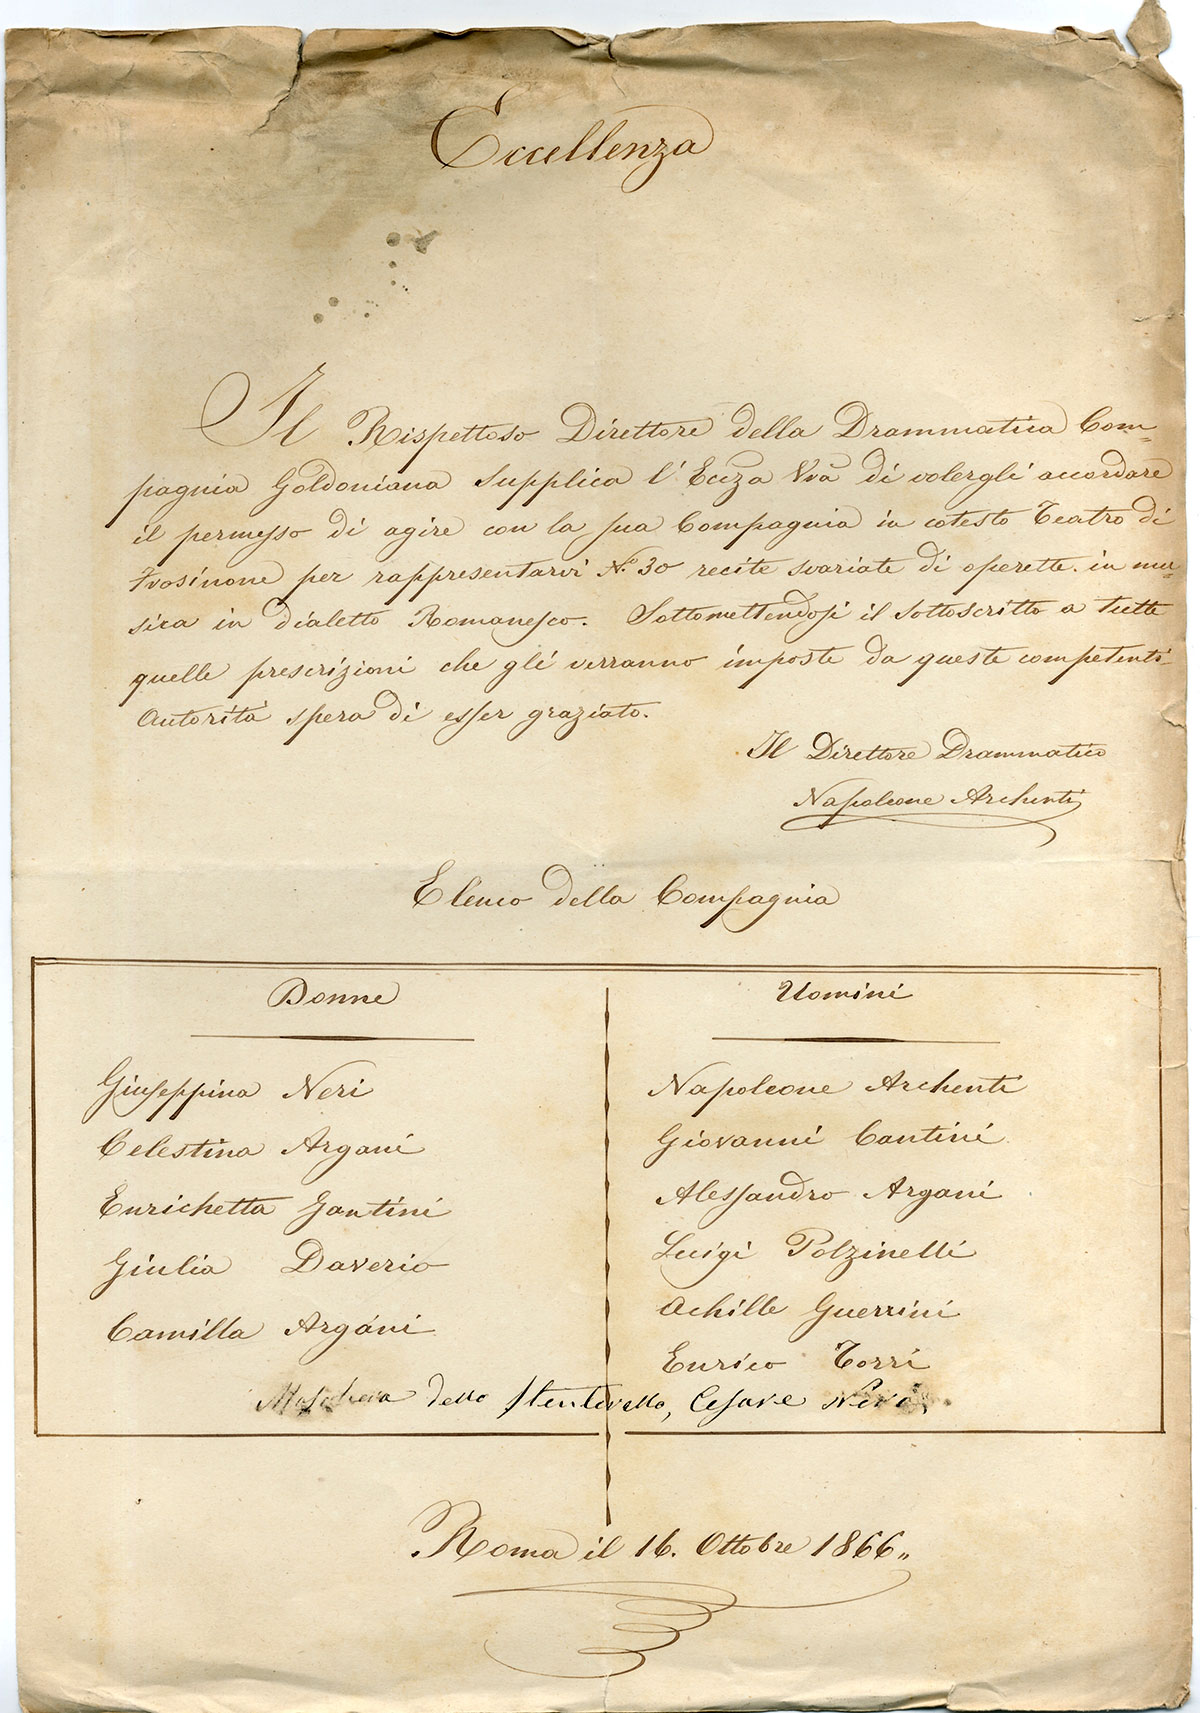 Eccellenza
Il Rispettoso Direttore della Drammatica Com=
pagnia Goldoniana supplica l'Ecc̃za Vrã di volergli accordare
il permesso di agire con la sua Compagnia in cotesto Teatro di
Frosinone per rappresentarvi N.º 30 recite svariate di operette in mu=
sica in dialetto Romanesco. Sottomettendosi il sottoscritto a tutte
quelle prescrizioni che gli verranno imposte da queste competenti
Autorità spera di esser graziato.
Il Direttore Drammatico
Napoleone Archenti
Elenco della Compagnia
Donne
Giuseppina Neri
Celestina Argani
Enrichetta Gantini
Giulia Daverio
Camilla Argani
Uomini
Napoleone Archenti
Giovanni Cantini
Alessandro Argani
Luigi Polzinelli
Achille Guerrini
Enrico Torri
Maschera dello Stenterello, Cesare Neri
Roma il 16. Ottobre 1866„